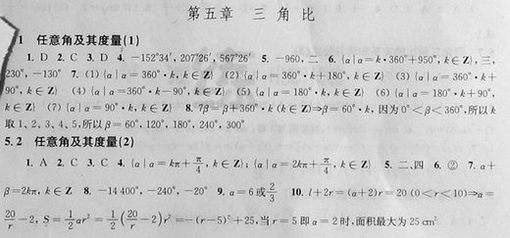 第五章 三角比
1 任意角及其度量(1)
1. D 2. C 3. D 4. －152°34′, 207°26′, 567°26′ 5. －960, 二 6. {α|α＝k·360°＋950°, k∈Z}, 三,
230°, －130° 7. (1) {α|α＝360°·k, k∈Z} (2) {α|α＝360°·k＋180°, k∈Z} (3) {α|α＝360°·k＋
90°, k∈Z} (4) {α|α＝360°·k－90°, k∈Z} (5) {α|α＝180°·k, k∈Z} (6) {α|α＝180°·k＋90°,
k∈Z} (7) {α|α＝90°·k, k∈Z} 8. 7β＝β＋360°·k (k∈Z)⇒β＝60°·k, 因为 0°＜β＜360°, 所以 k
取 1、2、3、4、5, 所以 β＝60°, 120°, 180°, 240°, 300°
5.2 任意角及其度量(2)
1. A 2. C 3. C 4. {α|α＝kπ＋π/4, k∈Z}; {α|α＝2kπ＋π/4, k∈Z} 5. 二、四 6. ② 7. α＋
β＝2kπ, k∈Z 8. －14 400°, －240°, －20° 9. α＝6 或 2/3 10. l＋2r＝(α＋2)r＝20 (0＜r＜10)⇒α＝
20/r－2, S＝1/2αr²＝1/2(20/r－2)r²＝－(r－5)²＋25, 当 r＝5 即 α＝2 时, 面积最大为 25 cm²